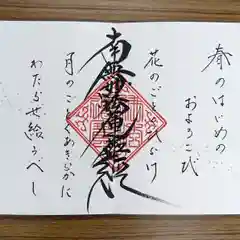 春のはじめの
およろこび
花のごとくひらけ
南無妙法蓮華経
月のごとくあきらかに
わたらせ給うべし